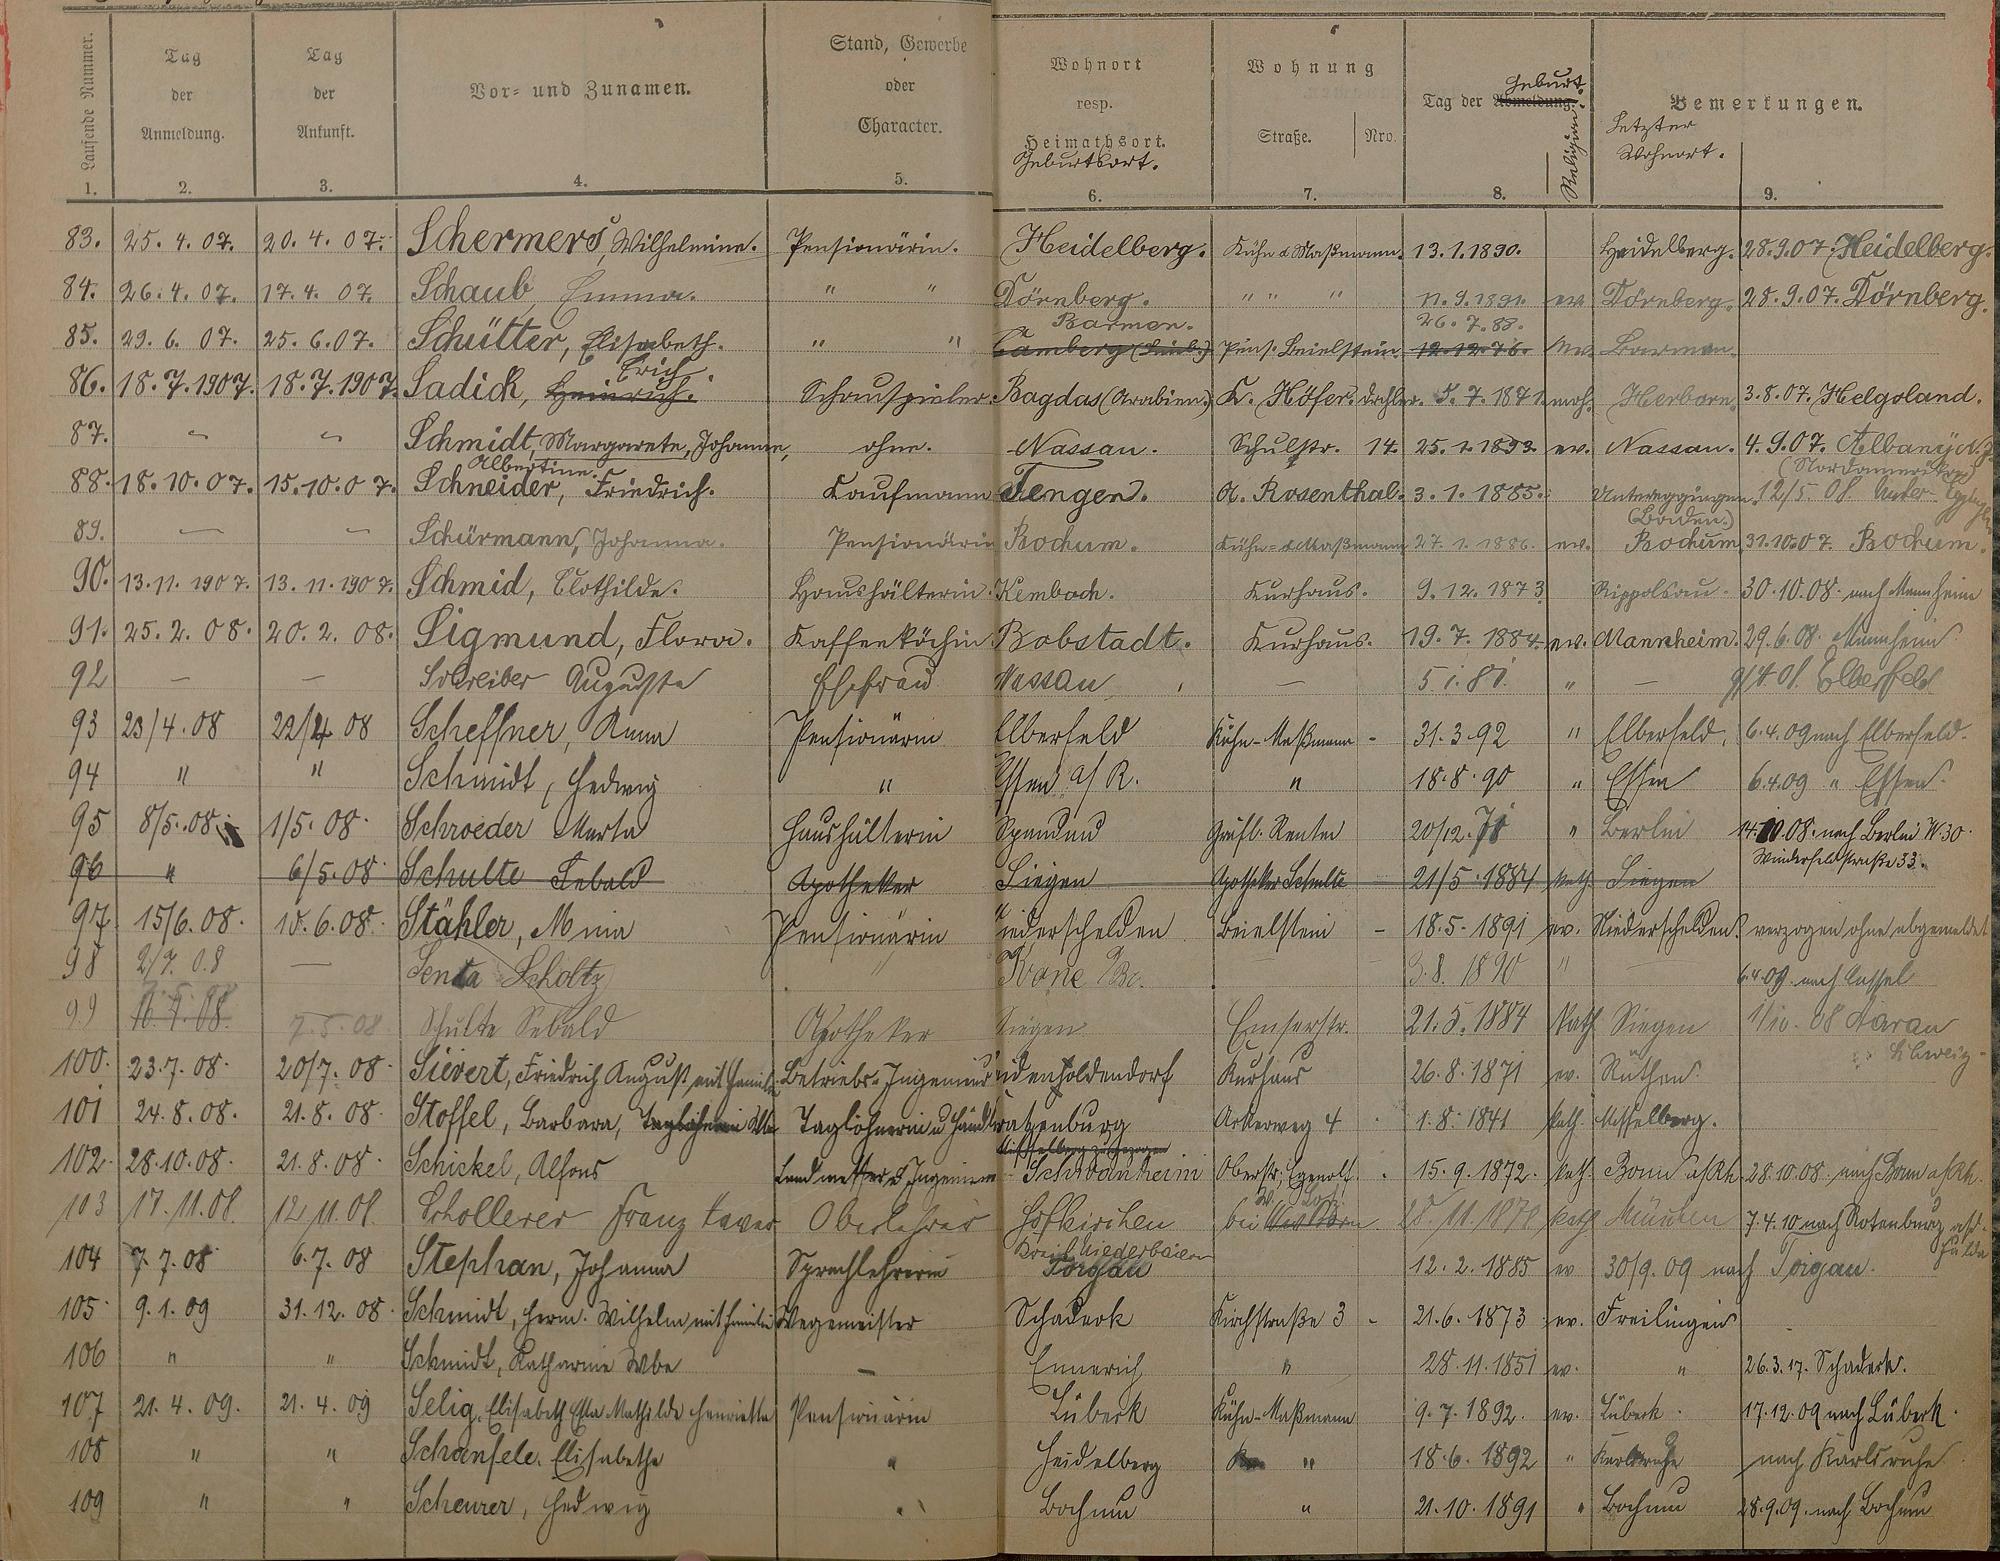 Laufende Nummer. Tag der Anmeldung. Tag der Ankunft. Vor- und Zunamen. Stand, Gewerbe oder Character. Wohnort resp. Heimathsort. Geburtsort. Wohnung Straße. Nro. Tag der Abmeldung. Geburt. Religion. Bemerkungen. Letzter Wohnort.
1. 2. 3. 4. 5. 6. 7. 8. 9.
83. 25. 4. 07. 20. 4. 07. Schermers, Wilhelmine. Pensionärin. Heidelberg. Kühn & Maßmann. 13. 1. 1890. Heidelberg. 28.9.07. Heidelberg.
84. 26. 4. 07. 17. 4. 07. Schaub, Emma. " " Dörnberg. " " " 11. 9. 1891. ev. Dörnberg. 28. 9. 07. Dörnberg.
Barmen. 26. 7. 88.
85. 29. 6. 07. 25. 6. 07. Schütter, Elisabeth. " " Camberg Pens. Beielstein 12.12.76. ev. Barmen.
Erich
86. 18. 7. 1907. 18. 7. 1907. Sadick, Heinrich. Schauspieler. Bagdas (Arabien.) K. Höfer. 5. 7. 1871. moh. Herborn. 3. 8. 07. Helgoland.
87. Schmidt, Margarete, Johanne, ohne. Nassau. Schulstr. 14. 25. 1. 1893. ev. Nassau. 4. 9. 07. Albany
Albertine. (Nordamerika)
88. 18. 10. 07. 15. 10. 07. Schneider, Friedrich. Kaufmann Tengen. A. Rosenthal. 3. 1. 1885. 12/5. 08. Unter-
(Baden.)
89. — — Schürmann, Johanna. Pensionärin Bochum. Kühn = & Maßmann 27. 1. 1886. ev. Bochum, 31.10.07. Bochum.
90. 13. 11. 1907. 13. 11. 1907. Schmid, Clothilde. Haushälterin. Kembach. Kurhaus. 9. 12. 1873. Rippolsau. 30. 10. 08. nach Mannheim
91. 25. 2. 08. 20. 2. 08. Sigmund, Flora. Kaffeeköchin. Bobstadt. Kurhaus. 19. 7. 1884. ev. Mannheim. 29. 6. 08. Mannheim
92 — — Schreiber Auguste Ehefrau Nassau — 5 1. 81. " — Elberfeld
93 23/4. 08 22/4 08 Scheffner, Anna Pensionärin Elberfeld Kühn-Maßmann - 31. 3. 92 " Elberfeld, 6. 4. 09 nach Elberfeld.
94 " " Schmidt, Hedwig " Essen a/ R. " 18. 8. 90 " Essen 6.4.09 " Essen.
95 8/5. 08. 1/5. 08. Schroeder Marta Haushälterin Spandau 20/12. " Berlin 14.10.08. nach Berlin W. 30.
Winterfeldstraße 33.
96 " 6/5. 08 Schulte Sebald Apotheker Siegen Apotheker Schulte 21/5. 1884 kath. Siegen
97 15/6. 08. 10. 6. 08. Stähler, Mina Pensionärin Niederschelden Beielstein - 18. 5. 1891 ev. Niederschelden. verzogen ohne abgemeldet
98 2/7. 08 — Senta Scholtz " 3. 8. 1890 " 6.4.09 nach Cassel
99 7.5.08 Schulte Sebald Apotheker Siegen Emserstr. 21. 5. 1884 Kath Siegen 1/10. 08 Aarau
Schweiz
100. 23. 7. 08. 20/7. 08. Sievert, Friedrich August mit Familie Betriebs-Ingenieur Kurhaus 26. 8. 1871 ev. Rüthen.
101 24. 8. 08. 21. 8. 08. Stoffel, Barbara, Taglöhnerin u. Ackerweg 4 1. 8. 1841 kath. Misselberg.
102. 28.10.08. 21. 8. 08. Schickel, Alfons Landmesser & Ingenieur Schwanheim Oberstr. Egenolf. 15. 9. 1872. kath. Bonn a/Rh. 28. 10. 08. nach Bonn a/Rh.
103 17. 11. 08. 12 11. 08. Schollerer Franz Xaver Oberlehrer Hofkirchen bei kath München 7. 4. 10 nach Rotenburg a/d.
Fulda
Kreis Niederbaiern
104 7. 7. 08 6. 7. 08 Stephan, Johanna Sprachlehrerin Torgau 12. 2. 1885 ev 30/9. 09 nach Torgau.
105. 9. 1. 09 31. 12. 08. Schmidt, Herm. Wilhelm mit Familie Wegemeister Schadeck Kirchstraße 3 - 21. 6. 1873 ev. Freilingen
106 " " Schmidt, Katharine Wbe — Ennerich " 28. 11. 1851 ev. " 26. 3. 17. Schadeck.
107 21. 4. 09. 21. 4. 09 Selig, Elisabeth Mathilde Henriette Pensionärin Lübeck Kühn-Maßmann 9. 7. 1892. ev. Lübeck. 17.12.09 nach Lübeck.
108 " " Schanfele, Elisabethe " Heidelberg " 18. 6. 1892 " Karlsruhe nach Karlsruhe
109 " " Scheurer, Hedwig " Bochum " 21. 10. 1891 " Bochum 28.9.09. nach Bochum